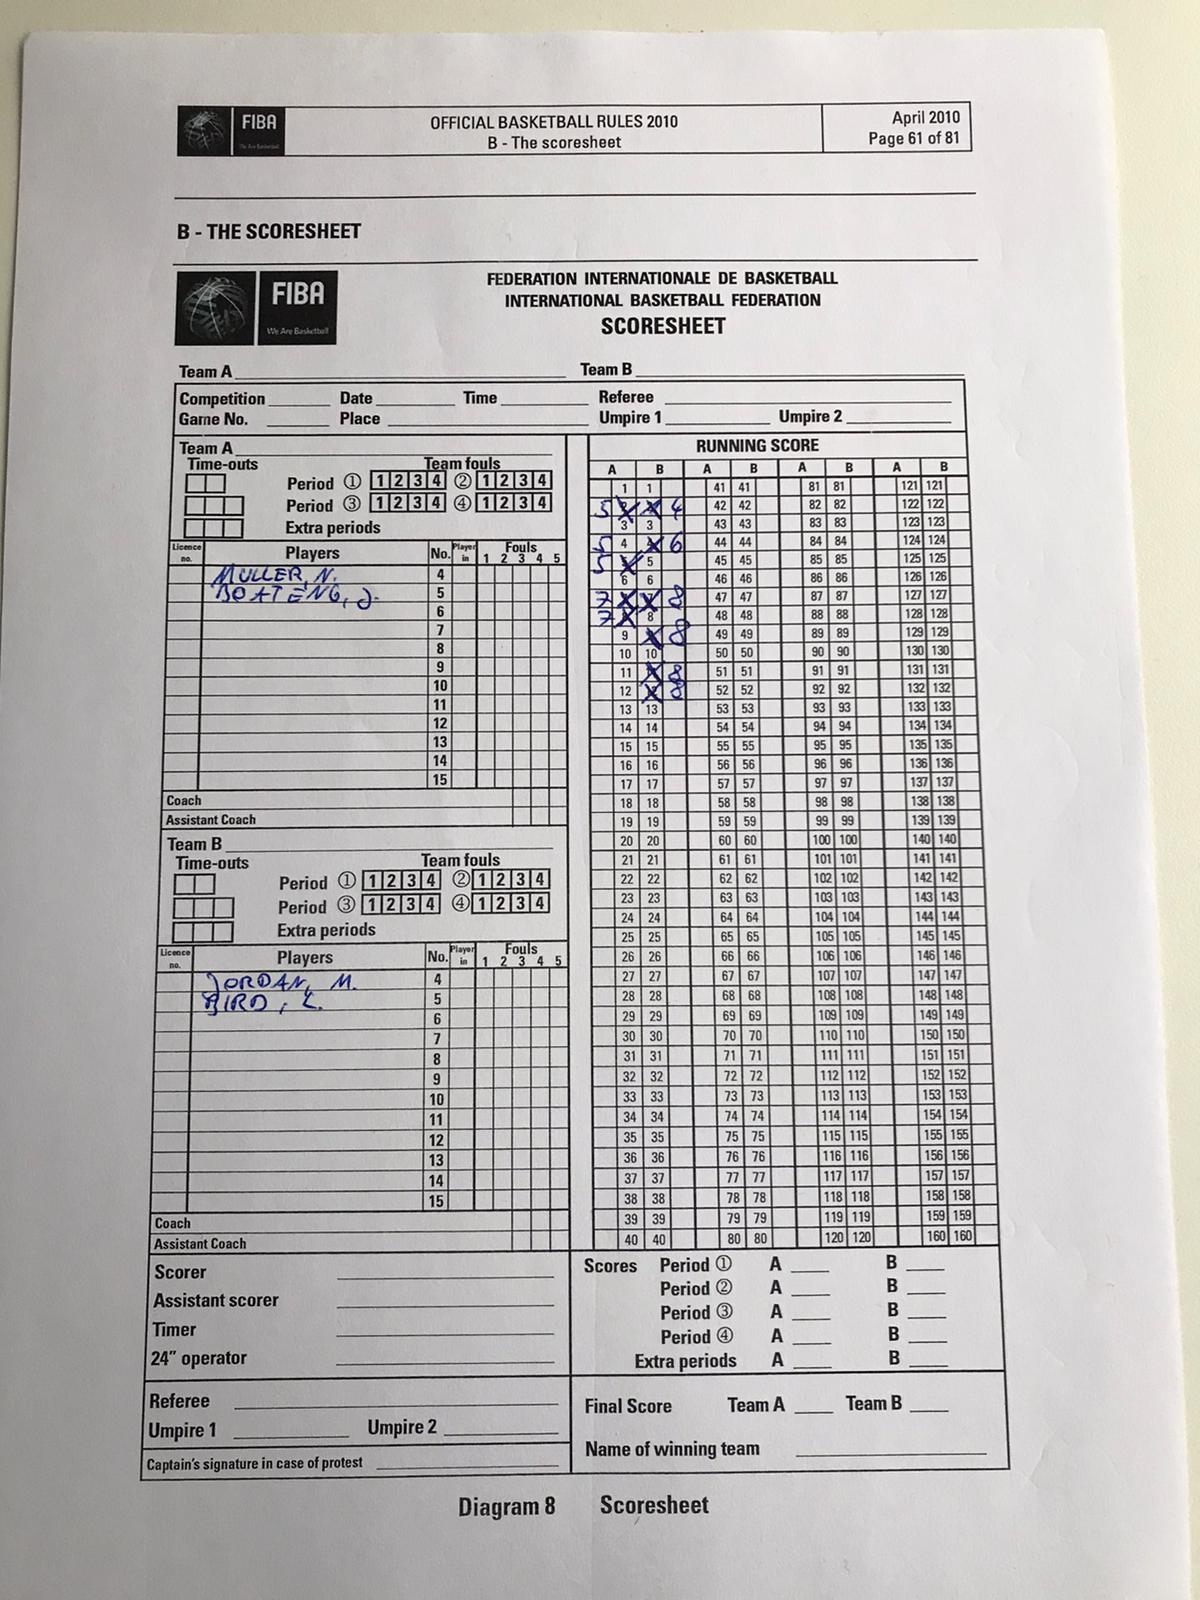 FIBA
We Are Basketball
OFFICIAL BASKETBALL RULES 2010
B - The scoresheet
April 2010
Page 61 of 81
B - THE SCORESHEET
FIBA
We Are Basketball
FEDERATION INTERNATIONALE DE BASKETBALL
INTERNATIONAL BASKETBALL FEDERATION
SCORESHEET
Team A Team B
Competition Date Time Referee
Game No. Place Umpire 1 Umpire 2
Team A
Time-outs Team fouls
Period ① 1 2 3 4 ② 1 2 3 4
Period ③ 1 2 3 4 ④ 1 2 3 4
Extra periods
Licence no. Players No. Player in Fouls 1 2 3 4 5
MULLER, N. 4
BOATENG, J. 5
6
7
8
9
10
11
12
13
14
15
Coach
Assistant Coach
Team B
Time-outs Team fouls
Period ① 1 2 3 4 ② 1 2 3 4
Period ③ 1 2 3 4 ④ 1 2 3 4
Extra periods
Licence no. Players No. Player in Fouls 1 2 3 4 5
JORDAN, M. 4
BIRD, L. 5
6
7
8
9
10
11
12
13
14
15
Coach
Assistant Coach
RUNNING SCORE
A B A B A B A B
1 1 41 41 81 81 121 121
5 4 42 42 82 82 122 122
3 3 43 43 83 83 123 123
5 4 6 44 44 84 84 124 124
5 5 45 45 85 85 125 125
6 6 46 46 86 86 126 126
7 8 47 47 87 87 127 127
7 8 48 48 88 88 128 128
9 8 49 49 89 89 129 129
10 10 50 50 90 90 130 130
11 8 51 51 91 91 131 131
12 8 52 52 92 92 132 132
13 13 53 53 93 93 133 133
14 14 54 54 94 94 134 134
15 15 55 55 95 95 135 135
16 16 56 56 96 96 136 136
17 17 57 57 97 97 137 137
18 18 58 58 98 98 138 138
19 19 59 59 99 99 139 139
20 20 60 60 100 100 140 140
21 21 61 61 101 101 141 141
22 22 62 62 102 102 142 142
23 23 63 63 103 103 143 143
24 24 64 64 104 104 144 144
25 25 65 65 105 105 145 145
26 26 66 66 106 106 146 146
27 27 67 67 107 107 147 147
28 28 68 68 108 108 148 148
29 29 69 69 109 109 149 149
30 30 70 70 110 110 150 150
31 31 71 71 111 111 151 151
32 32 72 72 112 112 152 152
33 33 73 73 113 113 153 153
34 34 74 74 114 114 154 154
35 35 75 75 115 115 155 155
36 36 76 76 116 116 156 156
37 37 77 77 117 117 157 157
38 38 78 78 118 118 158 158
39 39 79 79 119 119 159 159
40 40 80 80 120 120 160 160
Scorer
Assistant scorer
Timer
24" operator
Scores Period ① A B
Period ② A B
Period ③ A B
Period ④ A B
Extra periods A B
Referee
Umpire 1 Umpire 2
Captain's signature in case of protest
Final Score Team A Team B
Name of winning team
Diagram 8 Scoresheet